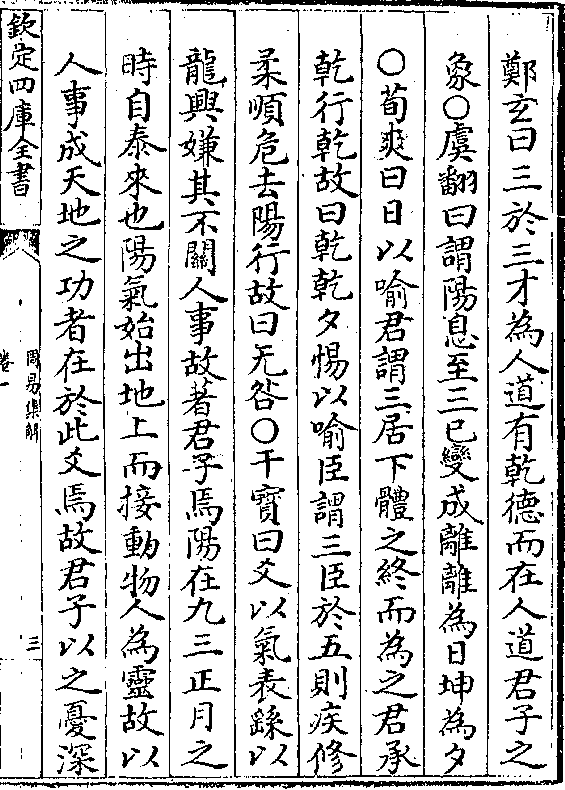 鄭玄曰三於三才為人道有乾德而在人道君子之
象○虞翻曰謂陽息至三已變成離離為日坤為夕
○荀爽曰日以喻君謂三居下體之終而為之君承
乾行乾故曰乾乾夕惕以喻臣謂三臣於五則疾修
柔順危去陽行故曰无咎○干寶曰爻以氣表繇以
龍興嫌其不關人事故著君子焉陽在九三正月之
時自泰來也陽氣始出地上而接動物人為靈故以
人事成天地之功者在於此爻焉故君子以之憂深
欽定四庫全書
周易集解
卷一
三